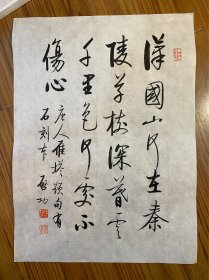 漢國山河在秦
陵草樹深暮雲
千里色何處不
傷心
唐人雁塔題句有
石刻本 啟功